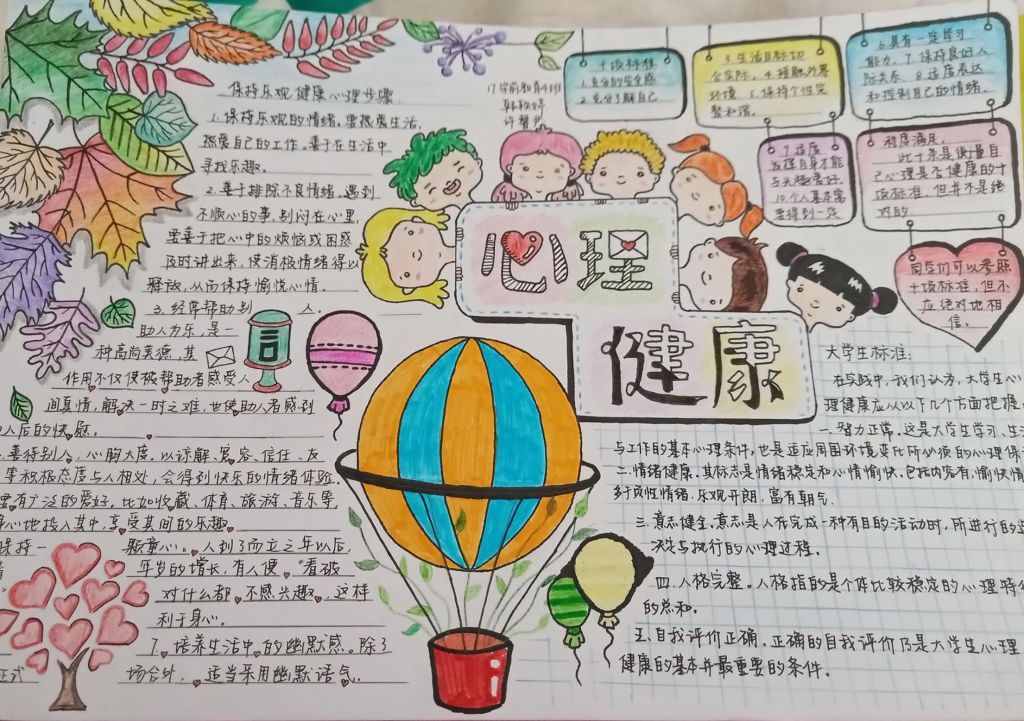 保持乐观健康心理步骤
1.保持乐观的情绪。要热爱生活，
热爱自己的工作。善于在生活中
寻找乐趣。
2.善于排除不良情绪，遇到
不顺心的事，别闷在心里，
要善于把心中的烦恼或困惑
及时讲出来，使消极情绪得以
释放，从而保持愉悦心情。
3.经常帮助别人。
助人为乐，是一
种高尚美德，其
作用不仅使被帮助者感受人
间真情，解决一时之难，也使助人者感到
助人后的快慰。
善待别人，心胸大度，以谅解、宽容、信任、友
等积极态度与人相处，会得到快乐的情绪体验
要有广泛的爱好，比如收藏、体育、旅游、音乐等
身心地投入其中，享受其间的乐趣。
保持一颗童心。人到了而立之年以后，
年岁的增长，有人便“看破
对什么都不感兴趣，这样
利于身心。
7.培养生活中的幽默感。除了
正式场合外，适当采用幽默语气。
17学前教育
心理
健康
十项标准
1.充分的安全感
2.充分了解自己
3.生活目标切
合实际。4.接触外界
环境 5.保持个性完
整和谐。
6.具有一定学习
能力。7.保持良好人
际关系 8.适度表达
和控制自己的情绪。
9.适度
发挥自身才能
与兴趣爱好。
10.个人基本需
要得到一定
程度满足。
此十条是衡量自
己心理是否健康的十
项标准，但并不是绝
对的
同学们可以参照
十项标准，但不
应绝对地相
信。
大学生标准：
在实践中，我们认为，大学生心
理健康应从以下几个方面把握。
一.智力正常。这是大学生学习、生活
与工作的基本心理条件，也是适应周围环境变化所必须的心理保
二.情绪健康。其标志是情绪稳定和心情愉快。包括内容有，愉快情
多于负性情绪，乐观开朗，富有朝气。
三.意志健全。意志是人在完成一种有目的活动时，所进行的选
决定与执行的心理过程。
四.人格完整。人格指的是个体比较稳定的心理特征
的总和。
五.自我评价正确。正确的自我评价乃是大学生心理
健康的基本并最重要的条件。